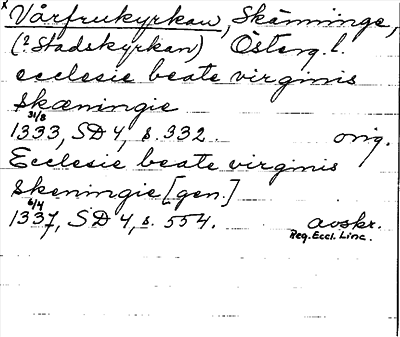 x Vårfrukyrkan, Skänninge,
(? Stadskyrkan) Österg. l.
ecclesie beate virginis
Skæningie
31/8
1333, SD 4, s. 332. orig.
Ecclesie beate virginis
Skeningie [gen.]
6/4
1337, SD 4, s. 554. avskr.
Reg. Eccl. Linc.